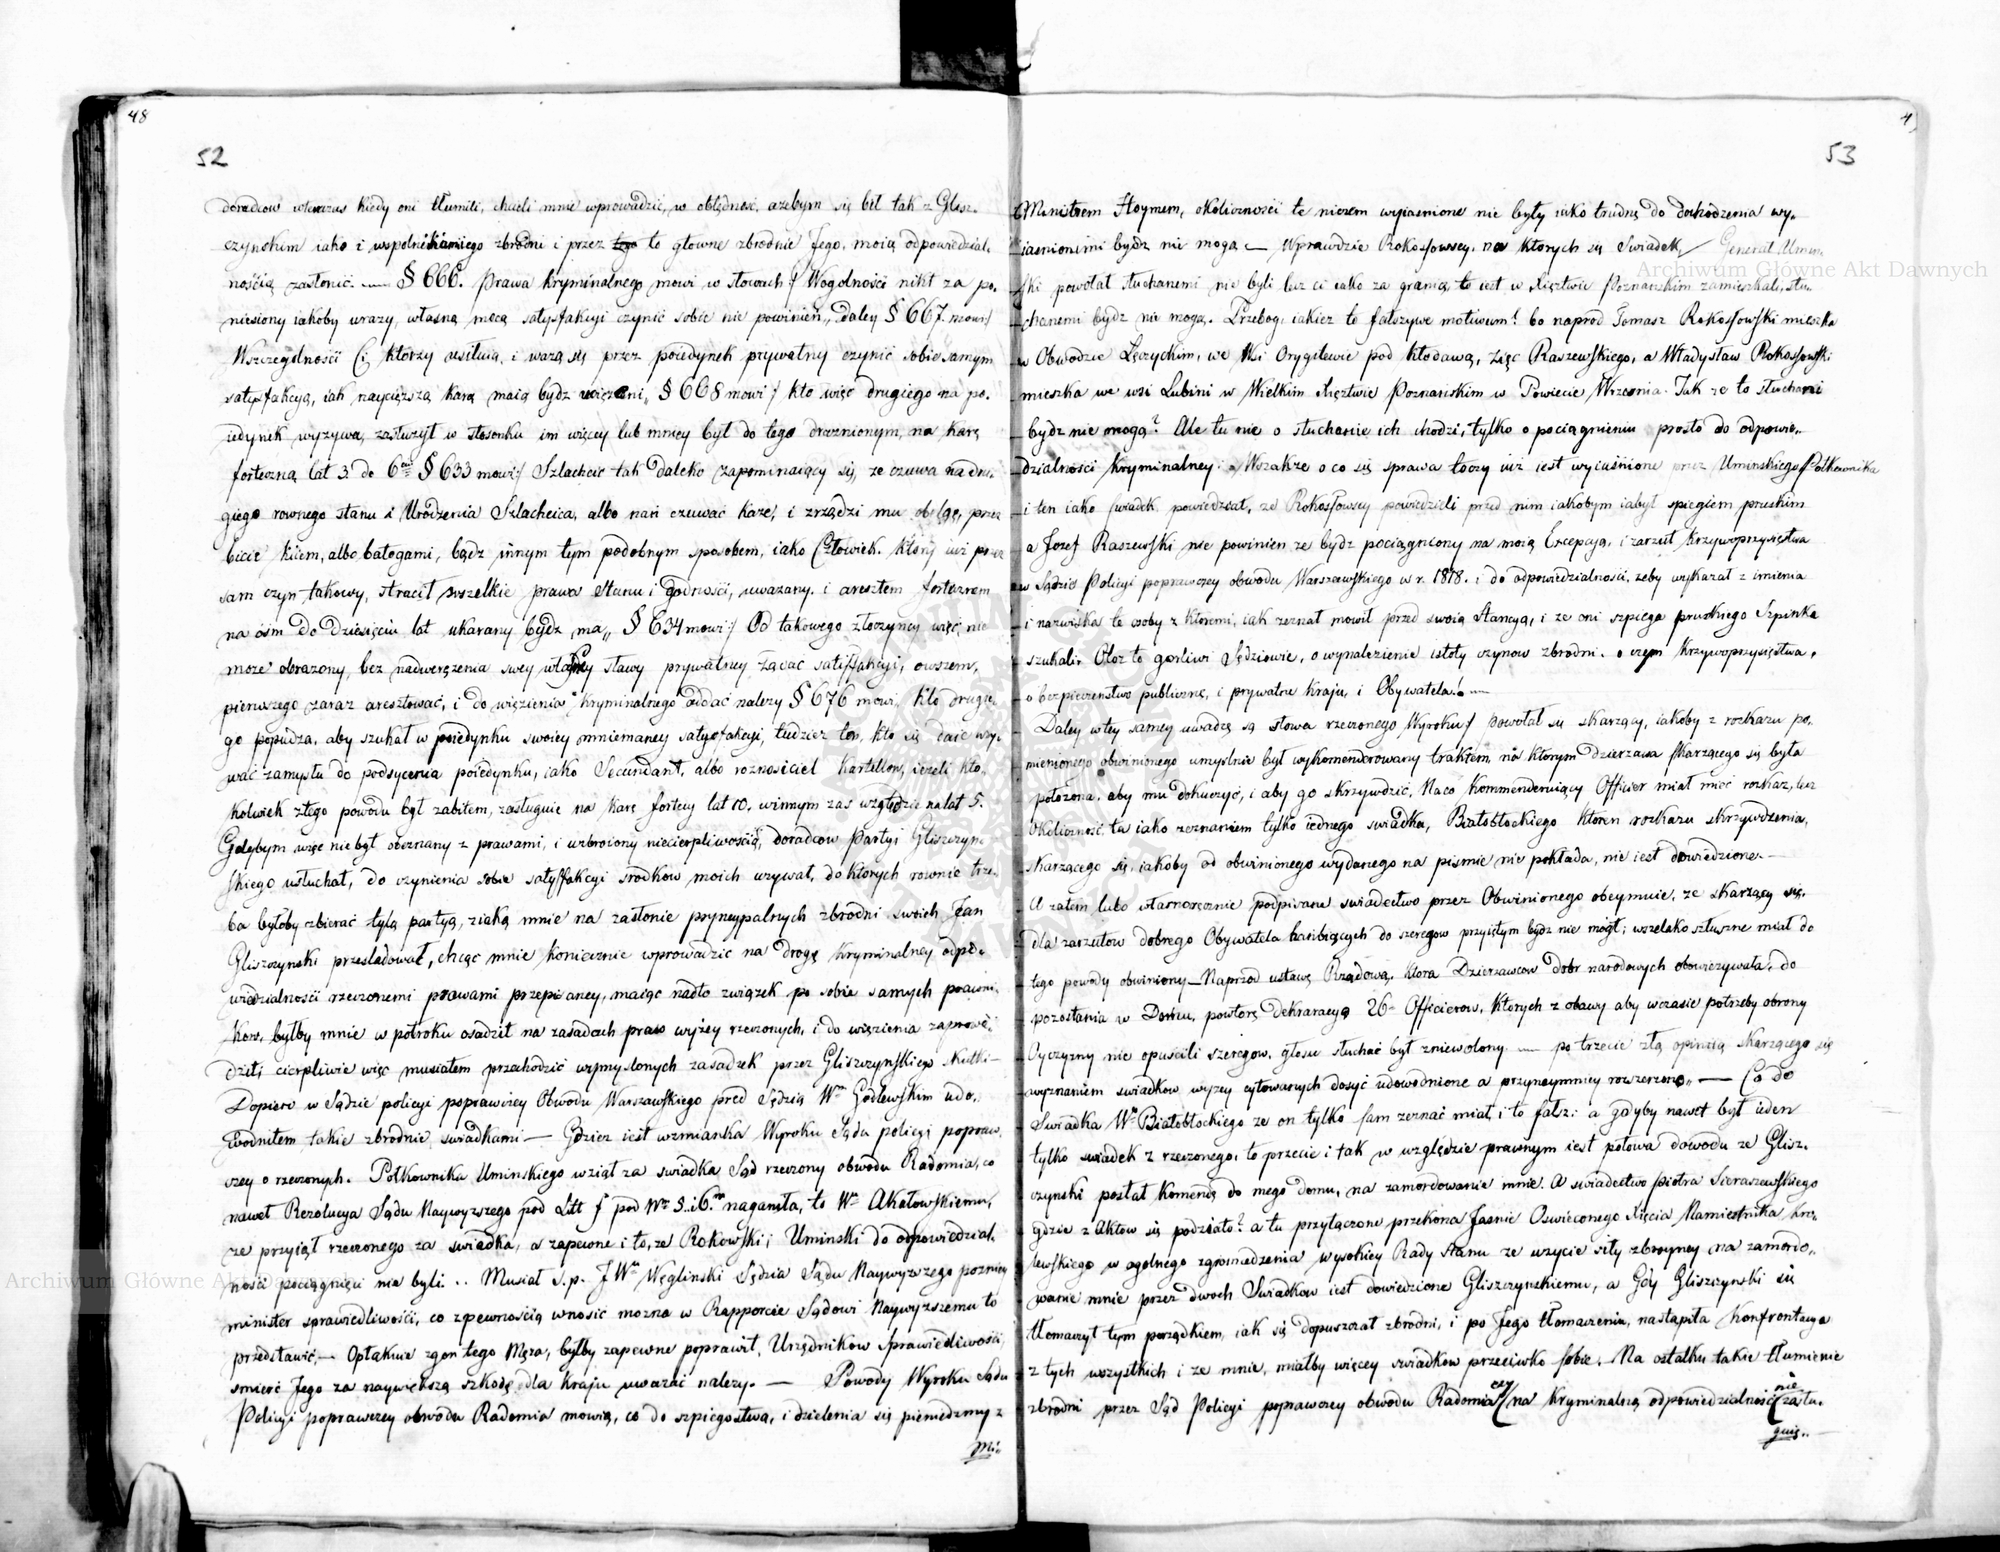 48
52
doradcow wtenczas kiedy oni tłumili, chcieli mnie wprowadzić, w obłędność, azebym się bił tak z Glisz-
czynskim iako i wspolnikamiego zbrodni i przez to głowne zbrodnie Jego, moią odpowiedzial-
nością zasłonić. — § 666. Prawa kryminalnego mowi w słowach:/ Wogolności nikt za po-
niesiony iakoby urazy, własną mocą satysfakcyi czynić sobie nie powinien,, daley § 667. mowi:/
Wszczegolności Ci, ktorzy usiłuią, i ważą się przez poiedynek prywatny czynić sobie samym
satysfakcyą, iak naycięższą karą maią bydz ,, § 668 mowi:/ kto więc drugiego na po-
iedynek wyzywa, zasłużył w stosunku im więcey lub mniey był do tego drażnionym, na karę
forteczną lat 3. do 6ciu § 633 mowi:/ Szlachcic tak daleko zapominaiący się, ze czuwa na dru-
giego rownego stanu i Urodzenia Szlachcica, albo nań czuwać każe, i zrządzi mu obelgę, przez
bicie kiiem, albo batogami, bądz innym tym podobnym sposobem, iako Człowiek, ktory iuż przez
sam czyn takowy, stracił wszelkie prawa Stanu i godności, uwazany, i aresztem fortecznem
na ośm do dziesięciu lat ukarany bydz ma,, § 634 mowi:/ Od takowego złoczyncy więc nie
może obrazony, bez nadweręzenia swey własney sławy prywatney żądać satisfakcyi, owszem,
pierwszego zaraz aresztować, i do więzienia kryminalnego oddać nalezy § 676 mowi,, kto drugie-
go popudza, aby szukał w poiedynku swoiey mniemaney satysfakcyi, tudziez ten, kto się daie uży-
wać zamysłu do podsycenia poiedynku, iako Secundant, albo roznosiciel Kartellow, iezeli kto-
kolwiek z tego powodu był zabitem, zasługuie na karę fortecy lat 10. winnym zas względzie na lat 5.
Gdybym więc nie był obeznany z prawami, i uzbroiony niecierpliwością, doradcow Partyi Gliszczyn-
skiego usłuchał, do czynienia sobie satysfakcyi srodkow moich uzywał, do ktorych rownie trze-
ba byłoby zbierać tylą partyą, ziaką mnie na zasłonie pryncypalnych zbrodni swoich Jan
Gliszczynski prześladował, chcąc mnie koniecznie wprowadzić na drogę kryminalney odpo-
wiedzialności rzeczonemi prawami przepisaney, maiąc nadto związek po sobie samych prawni-
kow, byłby mnie w potroku osadził na zasadach praw wyżey rzeczonych, i do więzienia zaprowa-
dził; cierpliwie więc musiałem przechodzić wymyslonych zasadzek przez Gliszczynskiego skutki —
Dopiero w Sądzie policyi poprawczey Obwodu Warszawskiego pred Sędzią Wm Godlewskim udo-
wodniłem takie zbrodnie swiadkami — Gdziez iest wzmianka Wyroku Sądu policyi popraw-
czey o rzeczonych. Połkownika Uminskiego wziął za swiadka Sąd rzeczony obwodu Radomia, co
nawet Rezolucya Sądu Naywyzszego pod Litt f pod Nr 5. i 6. naganiła, to Wm Akatowskiemu,
ze przyiął rzeczonego za swiadka, a zapewne i to, ze Rokowski i Uminski do odpowiedzial-
ności pociągnięci nie byli .. Musiał s.p. JWn Węglinski Sędzia Sądu Naywyzszego pozniey
minister sprawiedliwości, co zpewnością wnosić mozna w Rapporcie Sądowi Naywyzszemu to
przedstawić, — Opłakane zgon tego Męza, byłby zapewne poprawił, Urzędnikow Sprawiedliwości
smierć Jego za naywiększą szkodę dla kraju uwazać nalezy. — Powody Wyroku Sądu
Policyi poprawczey obwodu Radomia mowią, co do szpiegostwa, i dzielenia się pieniędzmy z
Mi-
53
Ministrem Hoymem, okoliczności te niczem wyiasnione nie były iako trudne do dochodzenia wy-
iasnionemi bydz nie mogą — Wprawdzie Rokossowscy, na ktorych się Swiadek General Umin-
ski powołał słuchanemi nie byli lecz ci iako za granicą, to iest w Xięztwie Poznanskim zamieszkali, słu-
chanemi bydz nie mogą. Przebog, iakiez to fałszywe motiwum! bo naprod Tomasz Rokossowski mieszka
w Obwodzie Łęczyckim, we Wsi Grygilewie pod Kłodawą, zięć Raszewskiego, a Władysław Rokossowski
mieszka we wsi Lubini w Wielkim Xięztwie Poznańskim w Powiecie Wrzesnia. Tak ze to słuchani
bydz nie mogą? Ale tu nie o słuchanie ich chodzi, tylko o pociągnieniu prosto do odpowie-
dzialności kryminalney: Wszakze o co się sprawa toczy iuż iest wyiaśnione przez Uminskiego Połkownika
i ten iako swiadek powiedział, ze Rokossowscy powiedzieli pred nim iakobym iabył spiegiem pruskim
a Jozef Raszewski nie powinien ze bydz pociągniony na moią Excepcyą, i zarzut krzywoprzysięstwa
w Sądzie Policyi poprawczey obwodu Warszawskiego w r. 1818. i do odpowiedzialności, zeby wykazał z imienia
i nazwiska te osoby z ktoremi, iak zeznał mowił przed swoią Stancyą, i ze oni szpiega pruskiego Szpinka
szukali. Otoz to gorliwi Sędziowie, o wynalezienie istoty czynow zbrodni. o czym krzywoprzysięstwa,
o bezpieczenstwo publiczne, i prywatne Kraju, i Obywatela! —
Daley wtey samey uwadze są słowa rzeczonego Wyroku:/ powołał się skarzący, iakoby z rozkazu po-
mienionego obwinionego umyslnie był wykomenderowany traktem, na ktorym dzierzawa skarzącego się była
położona, aby mu dokuczyć, i aby go skrzywdzić, Naco Kommenderuiący Officier miał mieć rozkaz, lecz
Okoliczność ta iako zeznaniem tylko iednego swiadka, Białobłockiego ktoren rozkazu skrzywdzenia,
skarzącego się, iakoby od obwinionego wydanego na pismie nie pokłada, nie iest dowiedzione. —
A zatem lubo własnoręcznie podpisane swiadectwo przez Obwinionego obeymuie, ze skarzący się,
dla zarzutow dobrego Obywatela hańbiących do szeregow przyiętym bydz nie mogł; wszelako słuszne miał do
tego powody obwiniony — Naprzod ustawę Rządową, ktora Dzierzawcow dobr narodowych obowiezywała, do
pozostania w Domu, powtore deklaracyą 26 Officierow, ktorych z obawy aby wczasie potrzeby obrony
Oyczyzny nie opuścili szeregow, głosu słuchać był zniewolony — po trzecie złą opinią skarzącego się
wyznaniem swiadkow wyzey cytowanych dosyć udowodnione a przynaymniey rozszerzone,, — Co do
Swiadka Wo Białobłockiego ze on tylko sam zeznać miał, i to fałsz: a gdyby nawet był ieden
tylko swiadek z rzeczonego, to przecie i tak w względzie prawnym iest połowa dowodu ze Glisz-
czynski posłał komendę do mego domu, na zamordowanie mnie. A swiadectwo Piotra Sieraszewskiego
gdzie z Aktow się podziało? a tu przyłączone przekona Jasnie Oswieconego Xięcia Namiestnika Kro-
lewskiego w ogolnego zgromadzenia wysokiey Rady Stanu ze uzycie siły zbroyney na zamordo-
wanie mnie przez dwoch Swiadkow iest dowiedzione Gliszczynskiemu, a Gdy Gliszczynski się
tłomaczył tym porządkiem, iak się dopuszczał zbrodni, i po Jego tłomaczeniu, nastąpiła konfrontacya
z tych wszystkich i ze mnie, miałby więcey swiadkow przeciwko sobie. Na ostatku takie tłumienie
zbrodni przez Sąd Policyi poprawczey obwodu Radomia czy na kryminalną odpowiedzialność nie zasłu-
guie..
Archiwum Główne Akt Dawnych
Archiwum Główne Akt Dawnych